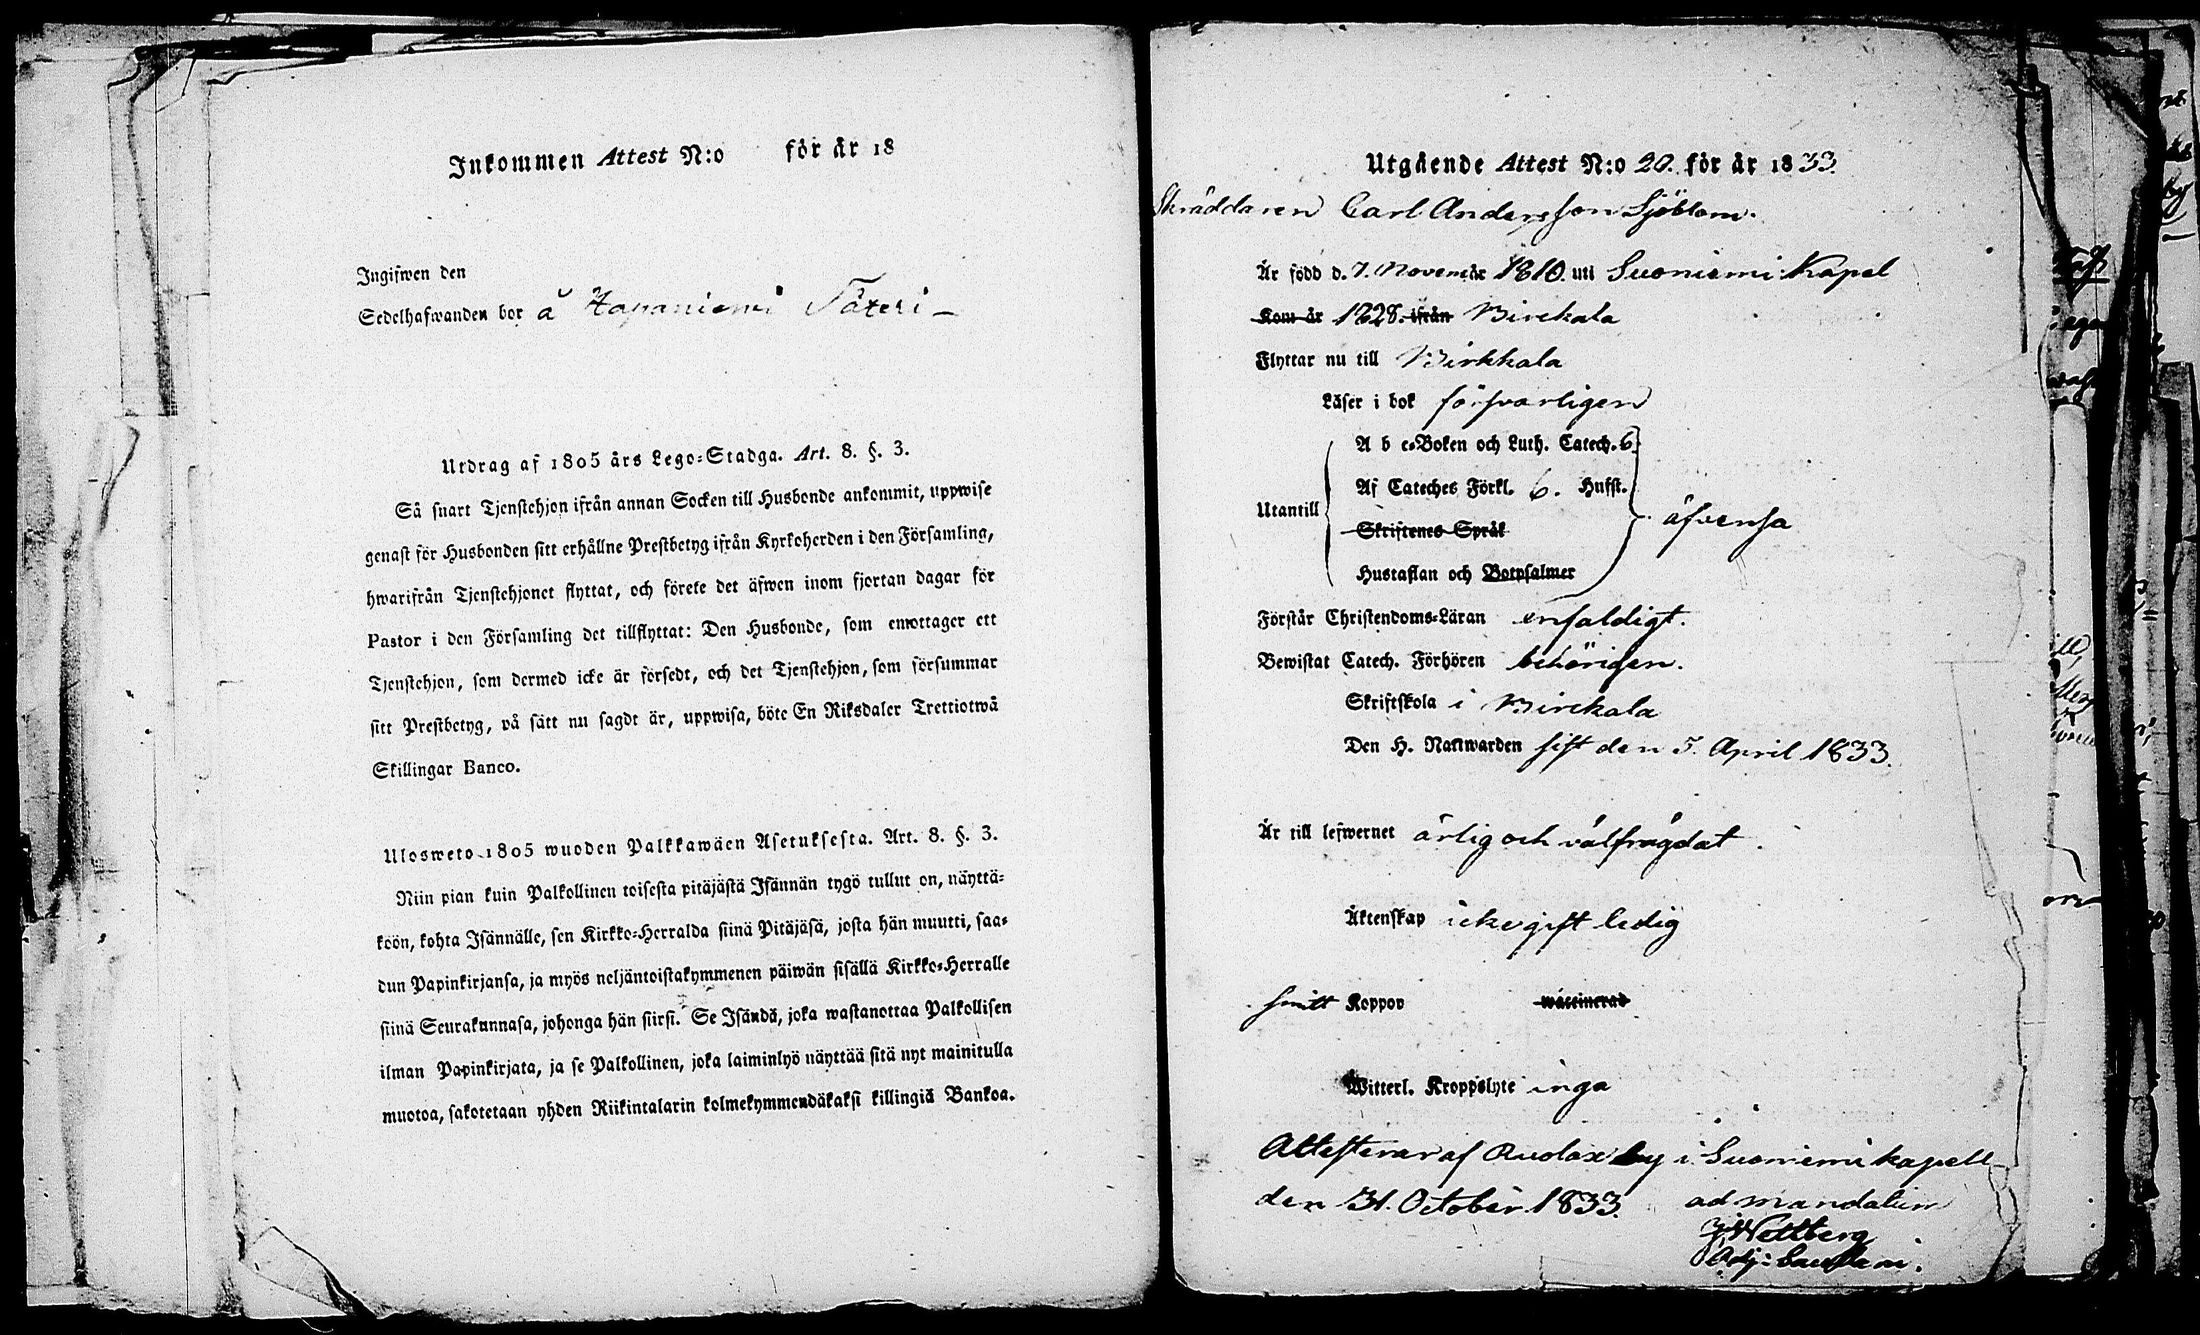 Inkommen Attest N:o för år 18
Ingifwen den
Sedelhafwanden bor å Hapaniemi Säteri
Utdrag af 1805 års Lego-Stadga. Art. 8. §. 3.
Så snart Tjenstehjon ifrån annan Socken till Husbonde ankommit, uppwise
genast för Husbonden sitt erhållne Prestbetyg ifrån Kyrkoherden i den Församling,
hwarifrån Tjenstehjonet flyttat, och förete det äfwen inom fjortan dagar för
Pastor i den Församling det tillflyttat: Den Husbonde, som emottager ett
Tjenstehjon, som dermed icke är försedt, och det Tjenstehjon, som försummar
sitt Prestbetyg, på sätt nu sagdt är, uppwisa, böte En Riksdaler Trettiotwå
Skillingar Banco.
Ulosweto 1805 wuoden Palkkawäen Asetuksesta. Art. 8. §. 3.
Niin pian kuin Palkollinen toisesta pitäjästä Isännän tygö tullut on, näyttä-
köön, kohta Isännälle, sen Kirkko-Herralda siinä Pitäjäsä, josta hän muutti, saa-
dun Papinkirjansa, ja myös neljäntoistakymmenen päiwän sisällä Kirkko-Herralle
siinä Seurakunnasa, johonga hän siirsi. Se Isändä, joka wastanottaa Palkollisen
ilman Papinkirjata, ja se Palkollinen, joka laiminlyö näyttää sitä nyt mainitulla
muotoa, sakotetaan yhden Riikintalarin kolmekymmendäkaksi killingiä Bankoa.
Utgående Attest N:o 20. för år 1833.
Skräddaren Carl Andersson Sjöblom.
Är född d. 7. November 1810. uti Suoniemi Kapel
Kom år 1828. ifrån Birckala
Flyttar nu till Birkkala
Läser i bok försvarligen
A b c-Boken och Luth. Catech. 6.
Af Cateches Förkl. 6. Hufst.
Utantill
Skriftenes Språk
äfvensa
Hustaflan och Botpsalmer
Förstår Christendoms-Läran enfaldigt.
Bewistat Catech. Förhören behörigen.
Skriftskola i Birckala
Den H. Nattwarden sist den 5. April 1833.
Är till lefwernet ärlig och välfrägdat.
Äktenskap icke gift ledig
haft Koppor waccinerad
Witterl. Kroppslyte inga
Attesterar af Kuolax by i Suoniemi kapell
den 31. October 1833. ad mandatum
Wettberg
Adj: